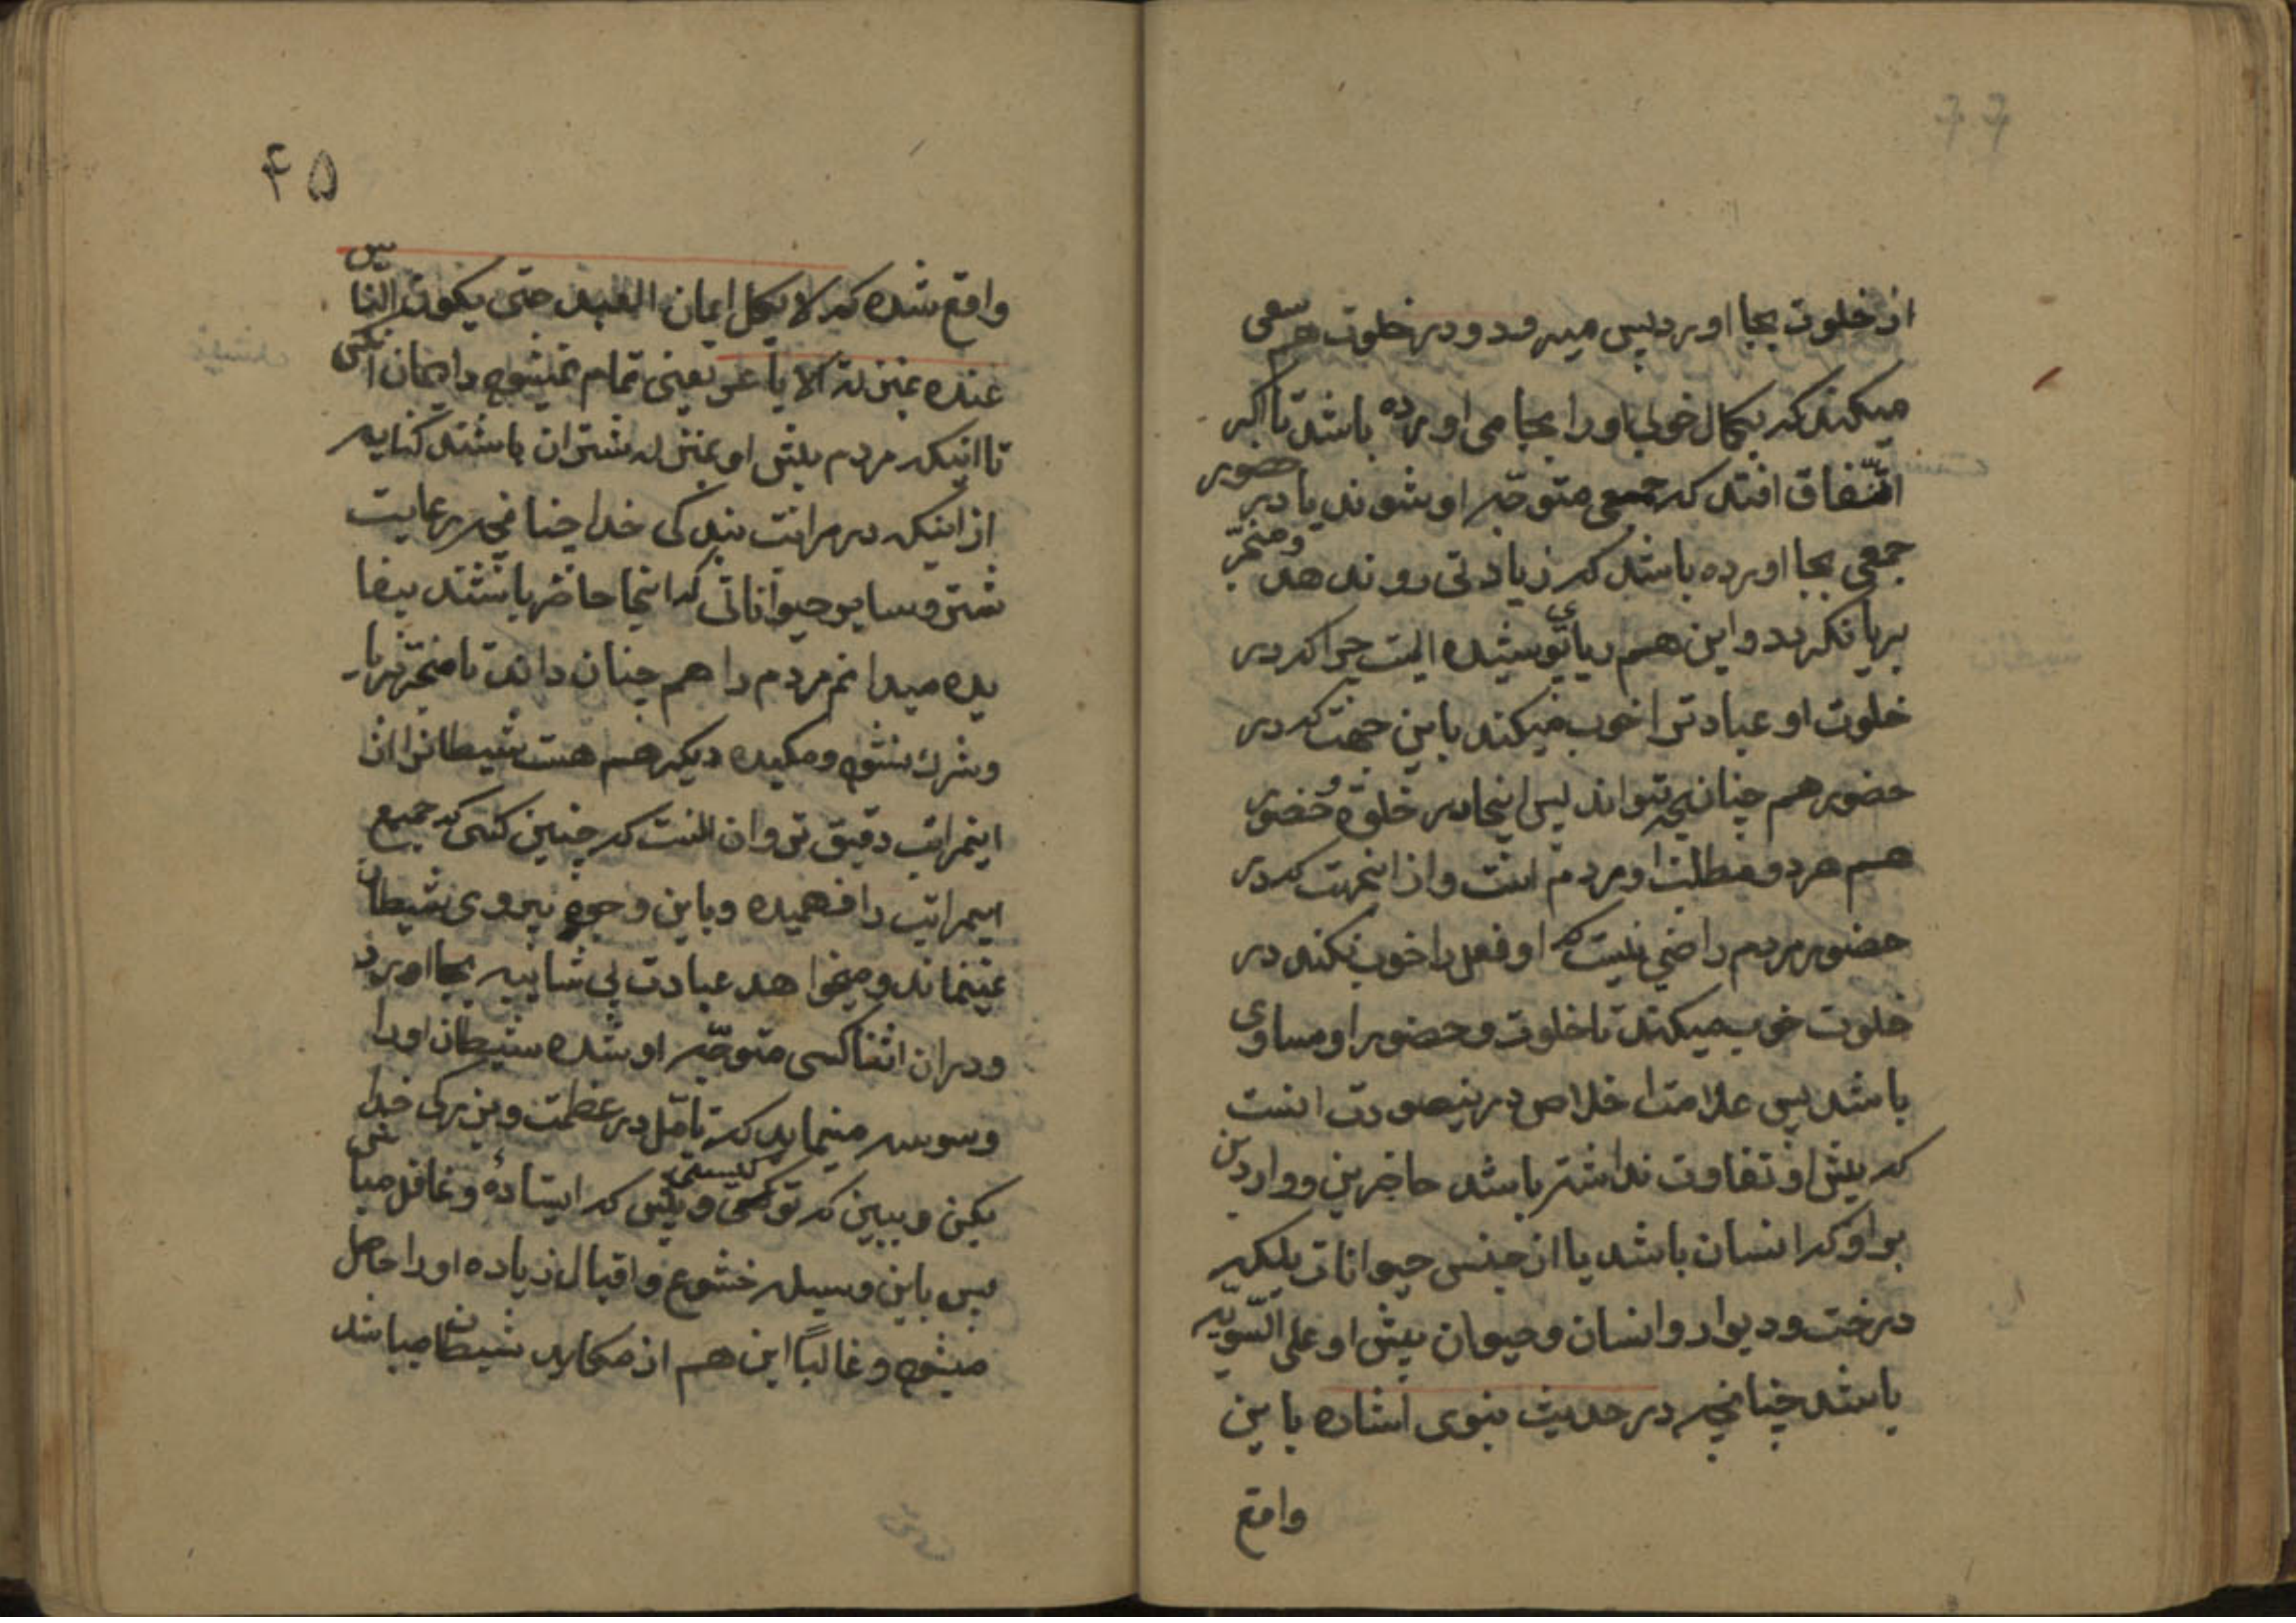 از خلوت بجا اورد پس میرود و در خلوت هم سعی
میکند که بکمال خوبی او را بجا می اورده باشد تا اگر
اتّفاق افتد که جمعی متوجّه او شوند یا در حضور
جمعی بجا اورده باشد که زیادتی روندهد و منجرّ
بریا نکردد و این هم ریائی پوشیده است چرا که در
خلوت او عبادترا خوب میکند باین جهت که در
حضور هم چنان تواند پس اینجا در خلوة و حضور
هم هر دو مطلب او مردم است و از اینجهت که در
حضور مردم راضی نیست که او فعل را خوب نکند در
خلوت خوب میکند تا خلوت و حضور او مساوی
باشد پس علامت اخلاص درینصورت اینست
که پیش او تفاوت نداشته باشد حاضرین و واردین
بر او که انسان باشد یا از جنس حیوانات بلکه
درخت و دیوار و انسان و حیوان پیش او علی السّویّه
باشد چنانچه در حدیث نبوی اشاره باین
واقع
۴۵
واقع شده که لا یکمل ایمان العبد حتی یکون النّاس
عنده بمنزلة الاباعر یعنی تمام نمیشود ایمان کسی
تا اینکه مردم پیش او بمنزله شتران باشند کنایه
از اینکه در مراتب بندکی خدا چنانچه رعایت
شتر و سایر حیواناتی که اینجا حاضر باشند بیفا
یده میدانم مردم را هم چنان داند تا منجر بریا
و شرک نشود و مکیده دیکر هم هست شیطانرا از
اینمراتب دقیق تر و ان انست که چنین کسی که جمیع
اینمراتب را فهمیده و باین وجوه پیروی شیطان
نمینماند و میخواهد عبادت بی شائبه بجا اورد
و در ان اثنا کسی متوجّه او شده شیطان او را
وسوسه مینماید که تامّل در عظمت و بزرکی خدا
بکن و ببین که تو کیستی و پیش که ایستادهٔ و غافل مباش
پس باین وسیله خشوع و اقبال زیاده او را حاصل
میشود و غالباً این هم از مکاید شیطان میباشد